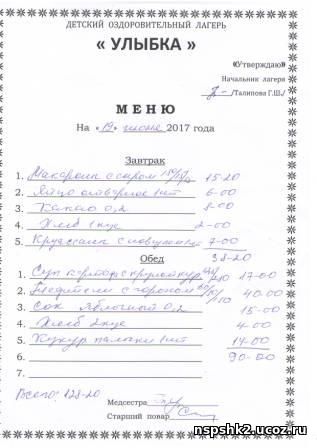 ДЕТСКИЙ ОЗДОРОВИТЕЛЬНЫЙ ЛАГЕРЬ
« УЛЫБКА »
«Утверждаю»
Начальник лагеря
/Талипова Г.Ш./
МЕНЮ
На «19» июне 2017 года
Завтрак
1. Макароны с сыром 15-20
2. Яйцо 1шт 6-00
3. Какао 0,2 8-00
4. Хлеб 1 кус 2-00
5. Круассаны с 7-00
38-20
Обед
1. Суп с 17-00
2. с горохом 40-00
3. Сок Яблочный 0,2 15-00
4. Хлеб 2 кус 4-00
5. Кукур палочки 1шт 14-00
6. 90-00
7.
Всего: 128-20
Медсестра
Старший повар
nspshk2.ucoz.ru